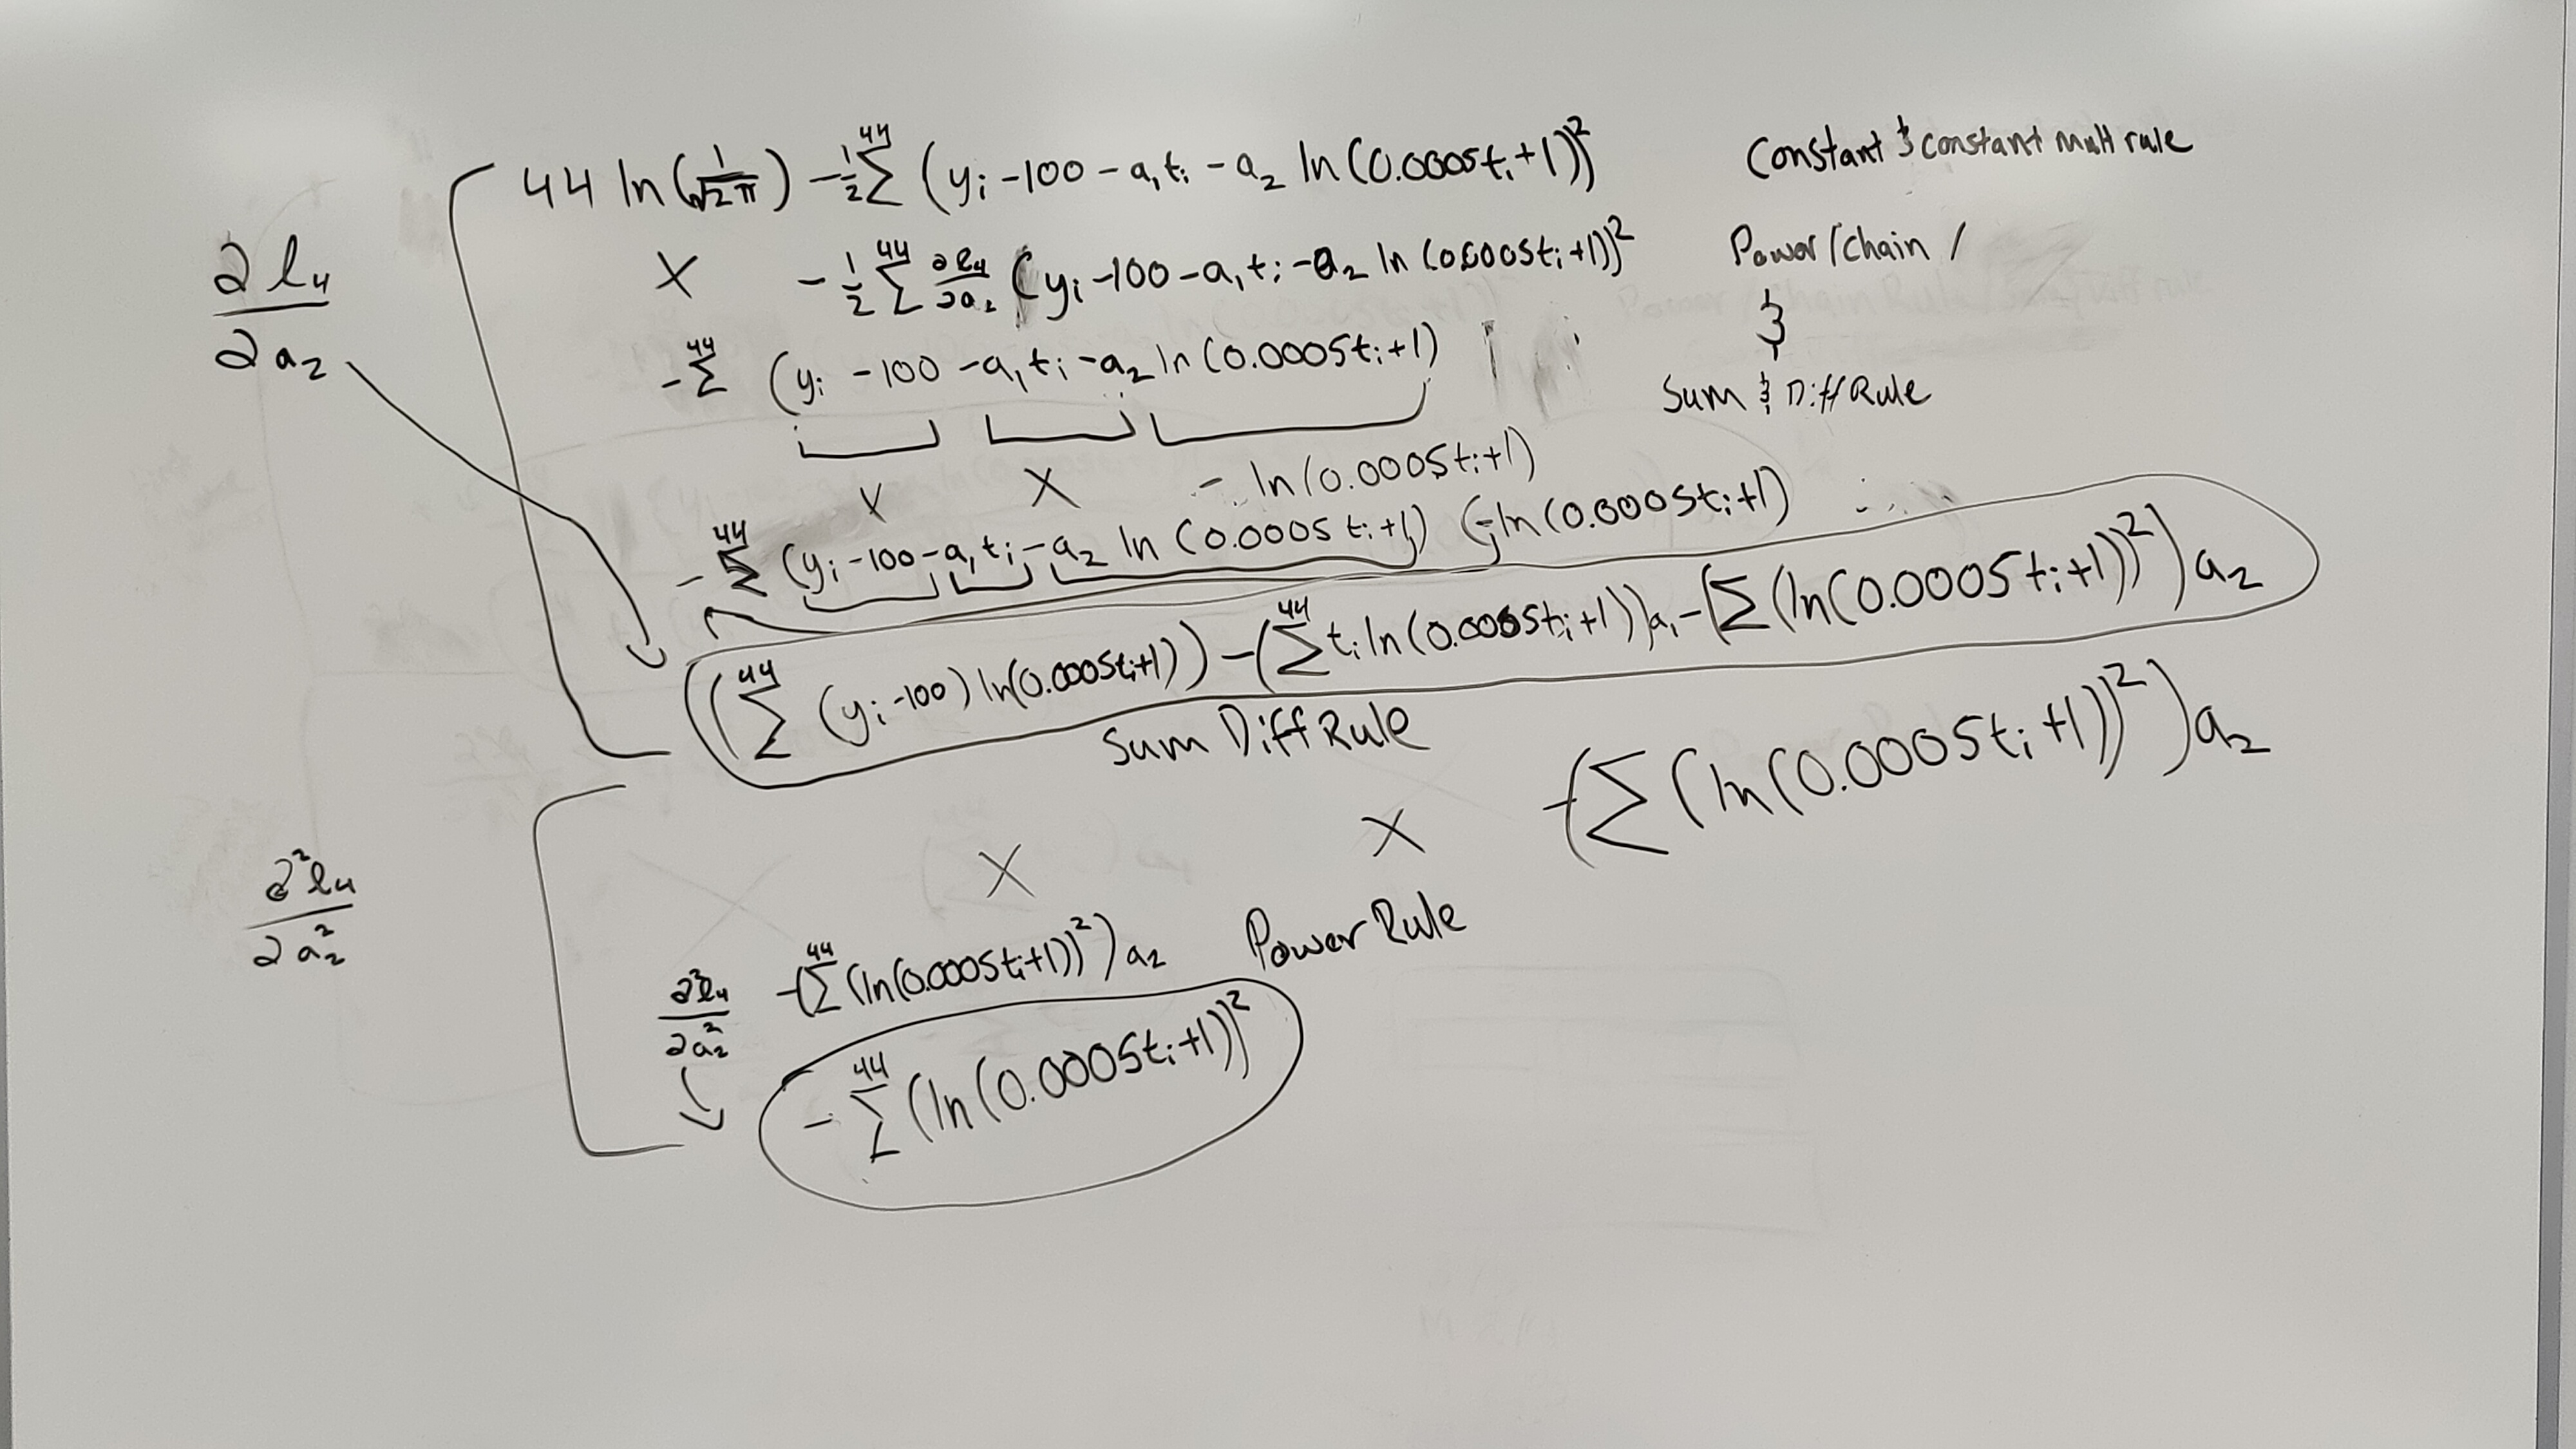 44 ln(1/√2π) - 1/2 44∑ (yi -100 - a₁ti - a₂ ln(0.0005ti+1))² Constant & constant mult rule
∂l₄/∂a₂
X - 1/2 44∑ ∂l₄/∂a₂ (yi -100 - a₁ti - a₂ ln(0.0005ti+1))² Power/Chain /
&
- 44∑ (yi -100 - a₁ti - a₂ ln(0.0005ti+1) Sum & Diff Rule
X X - ln(0.0005ti+1)
- 44∑ (yi -100 - a₁ti - a₂ ln(0.0005ti+1)) (-ln(0.0005ti+1)
(44∑ (yi -100) ln(0.0005ti+1)) - (44∑ ti ln(0.0005ti+1))a₁ - (∑(ln(0.0005ti+1))²)a₂
Sum Diff Rule
X X -(∑(ln(0.0005ti+1))²)a₂
∂²l₄/∂a₂²
∂²l₄/∂a₂² -(44∑(ln(0.0005ti+1))²)a₂ Power Rule
- 44∑(ln(0.0005ti+1))²